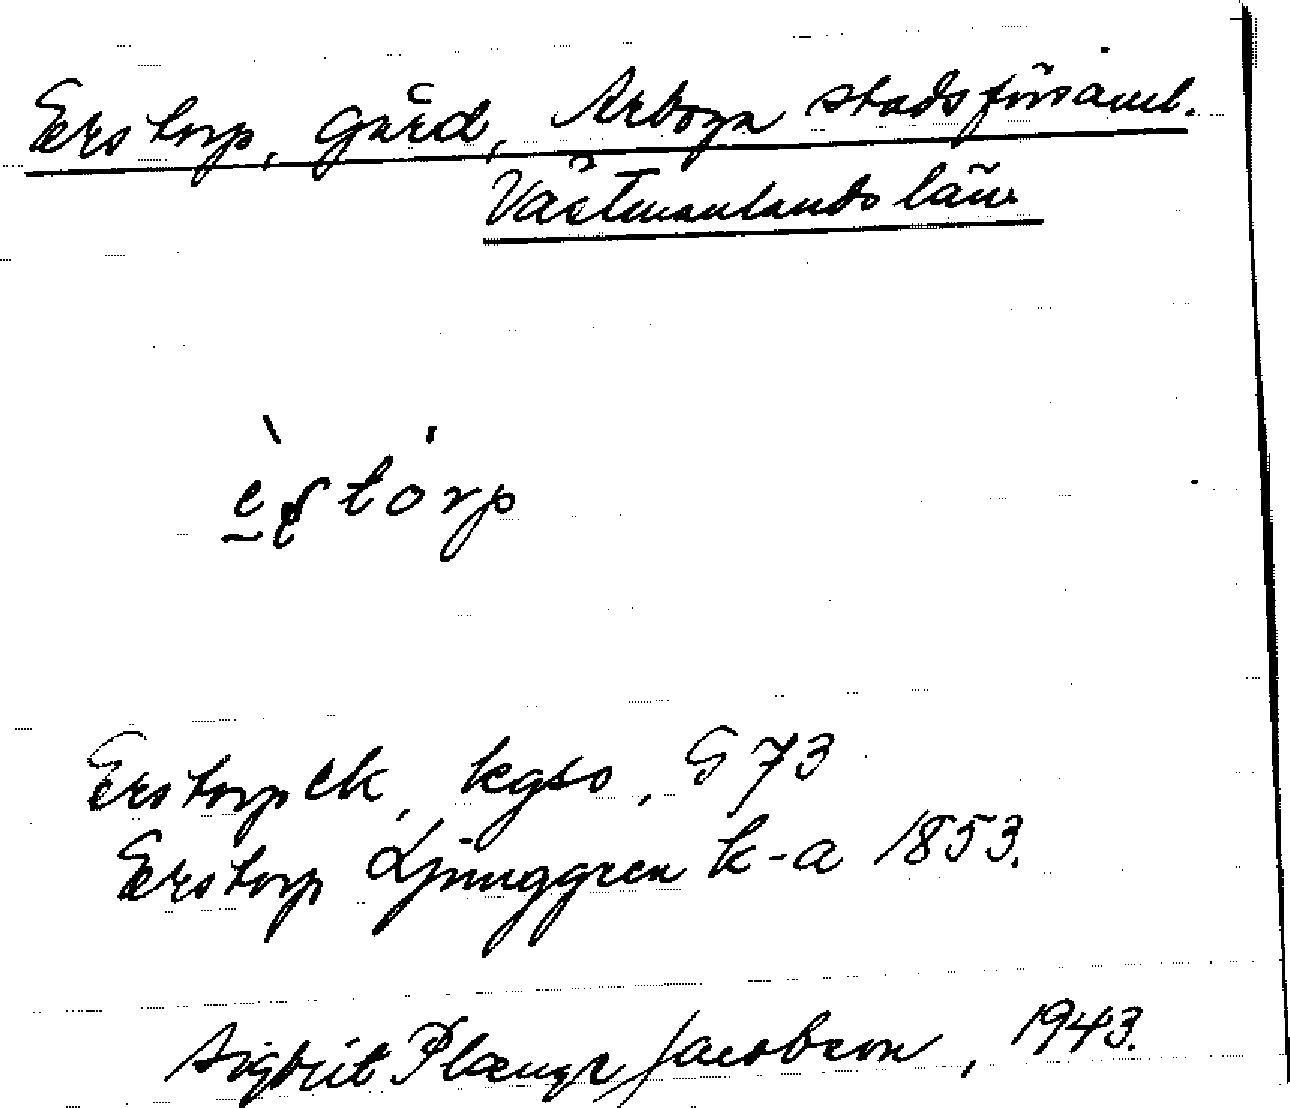 Erstorp, gård, Arboga stadsförsaml.
Västmanlands län.
Erstorp ek, kgso, G 73
Erstorp Ljunggren k-a 1853.
Sigbrit Plænge Jacobson, 1943.